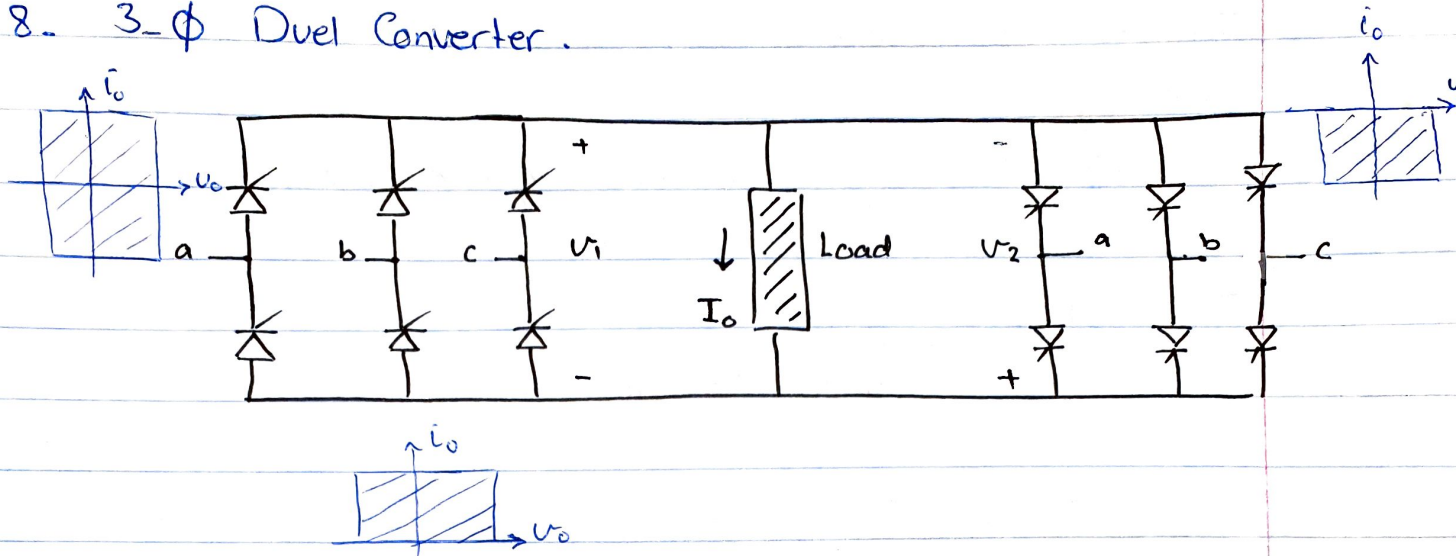 8. 3-Φ Duel Converter.
i₀
i₀
v₀
+
-
a
b
c
v₁
I₀
Load
v₂
a
b
c
-
+
i₀
v₀